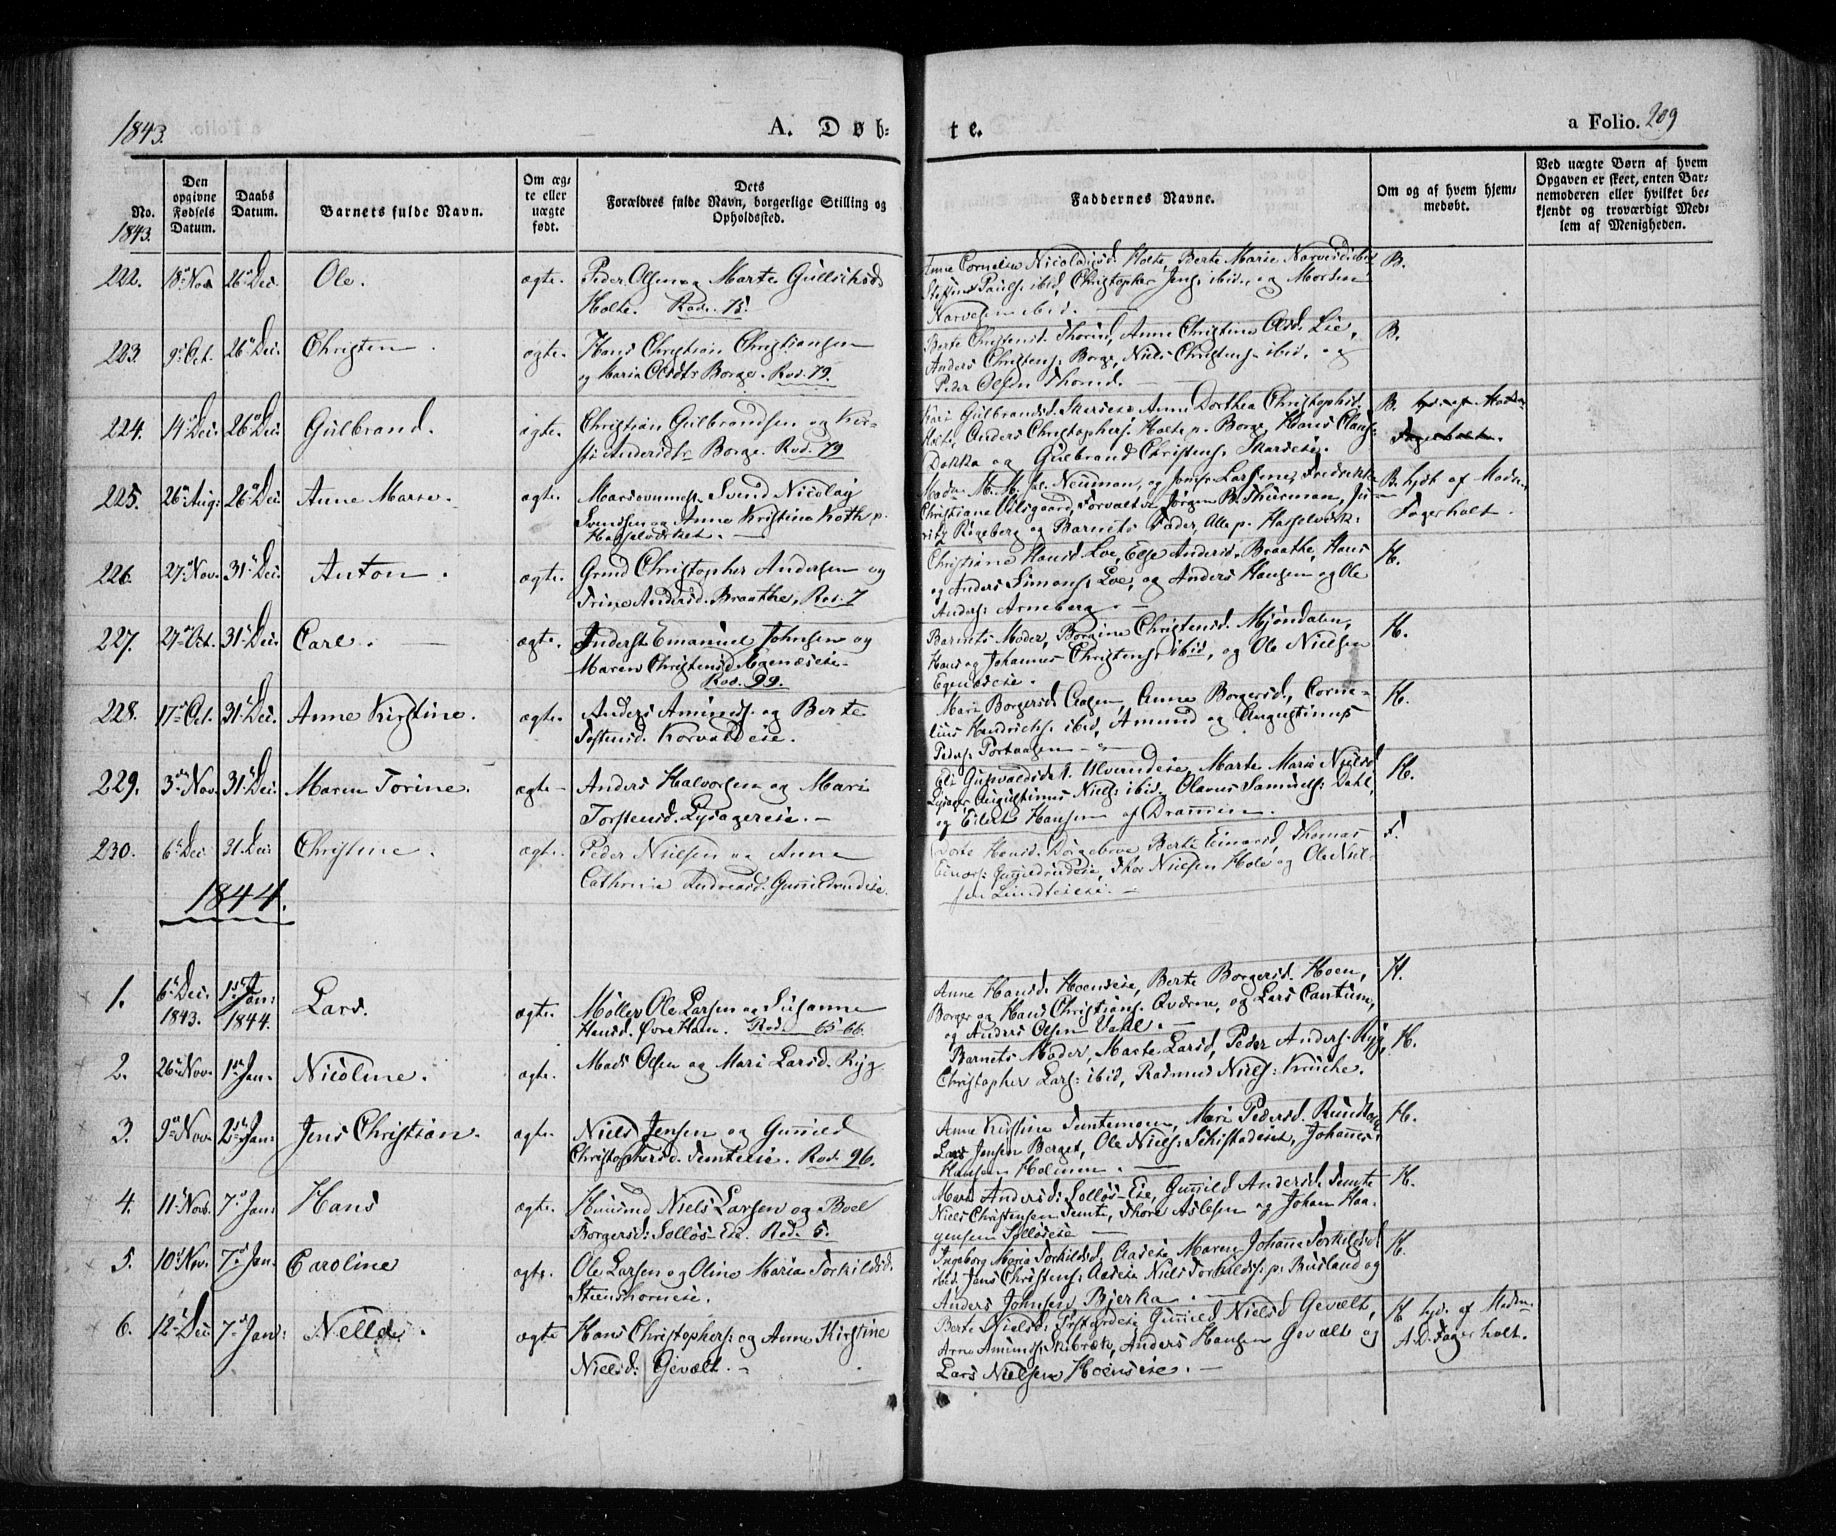 1843.
A. Døb-
te.
a Folio. 209
No.
1843.
Den opgivne Fødsels Datum.
Daabs Datum.
Barnets fulde Navn.
Om ægte eller uægte født.
Dets Forældres fulde Navn, borgerlige Stilling og Opholdssted.
Faddernes Navne.
Om og af hvem hjemmedøbt.
Ved uægte Børn af hvem Opgaven er skeet, enten Barnemoderen eller hvilket bekjendt og troværdigt Medlem af Menigheden.
222. 18de Nov 26de Dec. Ole. ægte. Peder Olsen og Marte Gulliksd
Holte. Rode. 15.
Anne Cornelia Nicolaisd. Holte, Berte Marie Narvesd ibid
Pauls: ibid, Christopher Jens: ibid. og Morten
Narvesen ibid.
B.
223. 9de Oct. 26de Dec. Christen. ægte. Hans Christian Christiansen
og Maria Olsdtr Borge. Rod. 79.
Berte Christensd. Thorud, Anne Christine Olsd. Lie,
Anders Christens: Borge, Niels Christens: ibid. og
Peder Olsen Thorud.
B.
224. 14de Dec. 26de Dec. Gulbrand. ægte. Christian Gulbrandsen og Kir-
sti Andersdtr Borge. Rod. 79
Kari Gulbrandsd. Anne Dorthea Christophsd.
Holte Anders Christophers: Holte p. Borge, Hans Claus:
Dokka og Gulbrand Christens:
B.
Fagerholt.
225. 26de Aug: 26de Dec Anne Marie. ægte. Svend Nicolay
Svendsen og Anne Kristina Koth p.
Hasselværket.
Neuman, og Larsine, Fredrikke
Christiane Forvalter Jørgen B. Thurman,
og Barnets Fader, Alle p. Hasselværk:
B. hjdt af Madm
Fagerholt.
226. 27de Nov. 31de Dec. Anton. ægte. Christopher Andersen og
Trine Andersd. Braathe, Rod. 7
Christiane Hansd. Loe, Else Andersd. Braathe, Hans
og Anders Simons: Loe, og Anders Hansen og Ole
Anders: Arneberg.
H.
227. 27de Oct. 31de Dec. Carl. ægte. Emanuel Johnsen og
Maren Christensd Egenæseie.
Rod. 99.
Barnets Moder, Borgine Christensd. Mjøndalen,
Hans og Johannes Christens: ibid, og Ole Nielsen
Egenæseie.
H.
228. 17de Oct. 31de Dec. Anne Kirstine. ægte. Anders Amunds: og Berte
Tostensd. Korvaldeie.
Mari Borgersd. Aasen, Anne Borgersd, Corne-
lius Hendrichs: ibid, Amund og Augustinus
Peders: Portaasen
H.
229. 3die Nov. 31de Dec. Maren Torine. ægte Anders Halvorsen og Mari
Torstensd. Lysagereie.
Eli Gunvaldsdt. Ulverudeie, Marte Marie Nielsd
Lysager Augustinus Niels: ibid. Olaves Samuels: Dahl,
og Eilert Hansen af Drammen.
H.
230. 6te Dec 31 Dec Christine. ægte. Peder Nielsen og Anne
Cathrine Andreasd. Gunildrudeie.
Dorte Hansd. Berte Einarsd, Thomas
Einars: Gunildrudeie, Thor Nielsen Hole og Ole Niel-
sen
F.
1844.
1. 6te Dec. 1843. 1ste Jan: 1844. Lars. ægte. Møller Ole Larsen og Susanne
Hansd. Øvre Hoen. Rod. 65-66.
Anne Hansd. Hoenseie, Berte Borgersd. Hoen,
Borger og Hans Christians: og Lars Cantum,
og Anders Olsen Dahl.
H.
2. 26de Nov. 1ste Jan. Nicoline. ægte. Mads Olsen og Mari Larsd. Ryg
Barnets Moder, Marte Larsd, Peder Anders: Ryg,
Christopher Lars: ibid, Rasmus Niels: Kruche.
H.
3. 9de Nov. 2den Jan: Jens Christian. ægte. Niels Jensen og Gunild
Christophersd. Temteeie. Rod. 96.
Anne Kirstine Temtemoen, Mari Pedersd.
Lars Jensen Berget, Ole Niels: Johannes
Hansen Holmen.
H.
4. 11te Nov. 7de Jan: Hans ægte. Husmd Niels Larsen og Boel
Borgersd: Solløs-Eie. Rod. 5.
Maria Andersd: Solløs-Eie, Gunild Andersd. Temte
Niels Christensen Temte, Thore Aslesen og Johan Haa-
gensen Solløseie
H.
5. 10de Nov. 7de Jan. Caroline ægte. Ole Larsen og Oline Maria Torkildsd.
Steenshorneie.
Ingeborg Maria Torkildsd, Aaseie, Maren Johanne Torkildsd
ibid. Jens Christens: Aaseie Niels Torkilds: p: Busland og
Anders Johnsen Bjerka.
H.
6. 12te Dec 7de Jan: ægte Hans Christophers: og Anne Kirstine
Nielsd: Gevælt.
Berte Nielsd: Gunild Nielsd Gevælt,
Arne Amunds: Skibræk, Anders Hansen Gevælt og
Lars Nielsen Hoenseie.
H hjd. af Madm
A. D. Fagerholt.